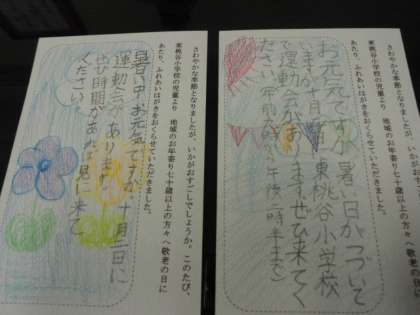 さわやかな季節となりましたが、いかがおすごしでしょうか。このたび、
東桃谷小学校の児童より 地域のお年寄り七十歳以上の方々へ敬老の日に
あたり、ふれあいはがきをおくらせていただきました。
お元気ですか暑い日がつづいて
ますが十月 日東桃谷小学校
で運動会がありますぜひ来てく
ださい。(午前 時から午後二時半まで)
さわやかな季節となりましたが、いかがおすごしでしょうか。このたび、
東桃谷小学校の児童より 地域のお年寄り七十歳以上の方々へ敬老の日に
あたり、ふれあいはがきをおくらせていただきました。
暑い中、お元気ですか。十月二日に
運動会があります。
ぜひ時間があれば見に来て
ください。